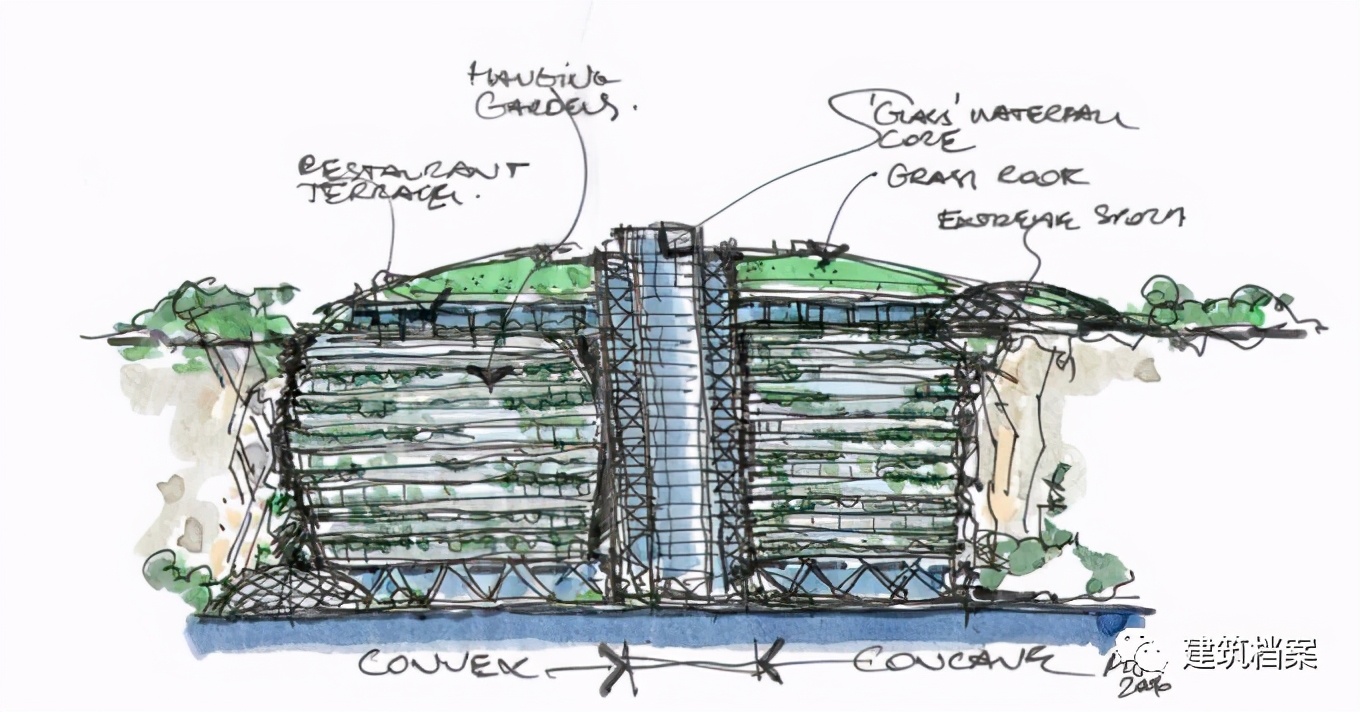 HANGING
GARDENS.
RESTAURANT
TERRACE.
'GLASS' WATERFALL
CORE
GRASS ROOF
EXTREME SPORT
CONVEX
CONCAVE
建筑档案